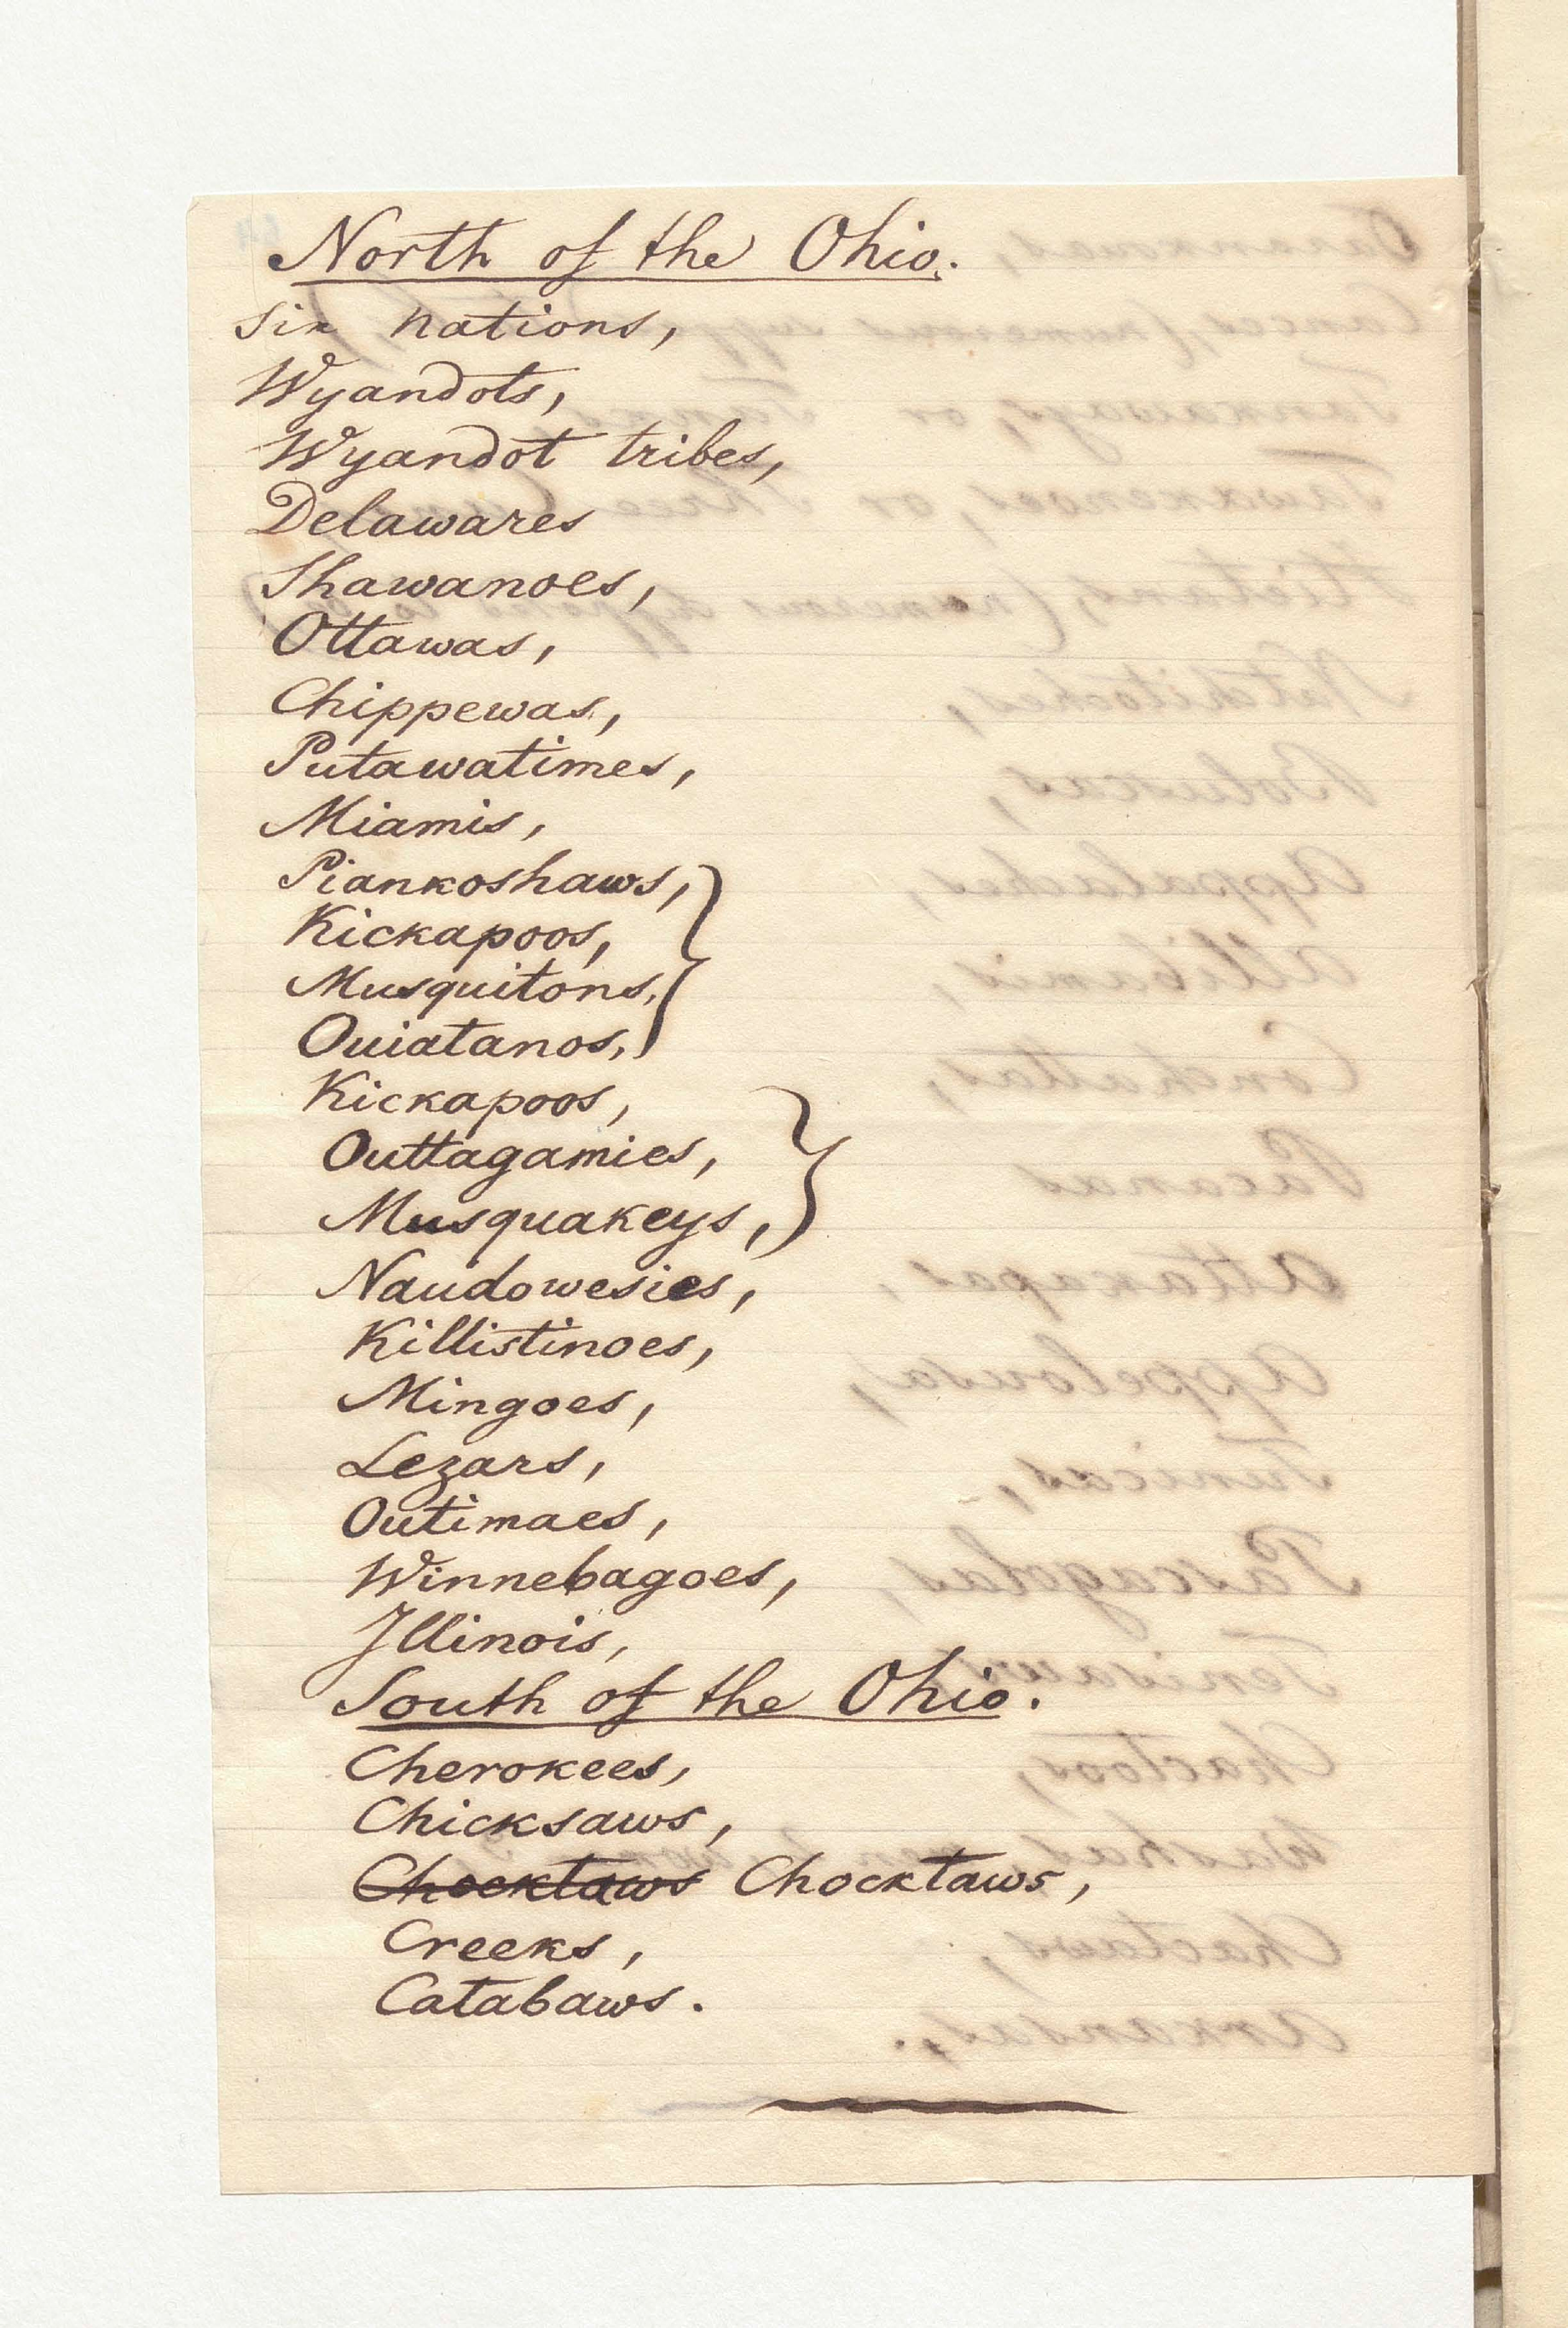 North of the Ohio.
Six nations,
Wyandots,
Wyandot tribes,
Delawares
Shawanoes,
Ottawas,
Chippewas,
Putawatimes,
Miamis,
Piankoshaws,
Kickapoos,
Musquitons,
Ouiatanos,
Kickapoos,
Outtagamies,
Musquakeys,
Naudowesies,
Killistinoes,
Mingoes,
Lezars,
Outimaes,
Winnebagoes,
Illinois,
South of the Ohio.
Cherokees,
Chicksaws,
Chocktaws Chocktaws,
Creeks,
Catabaws.